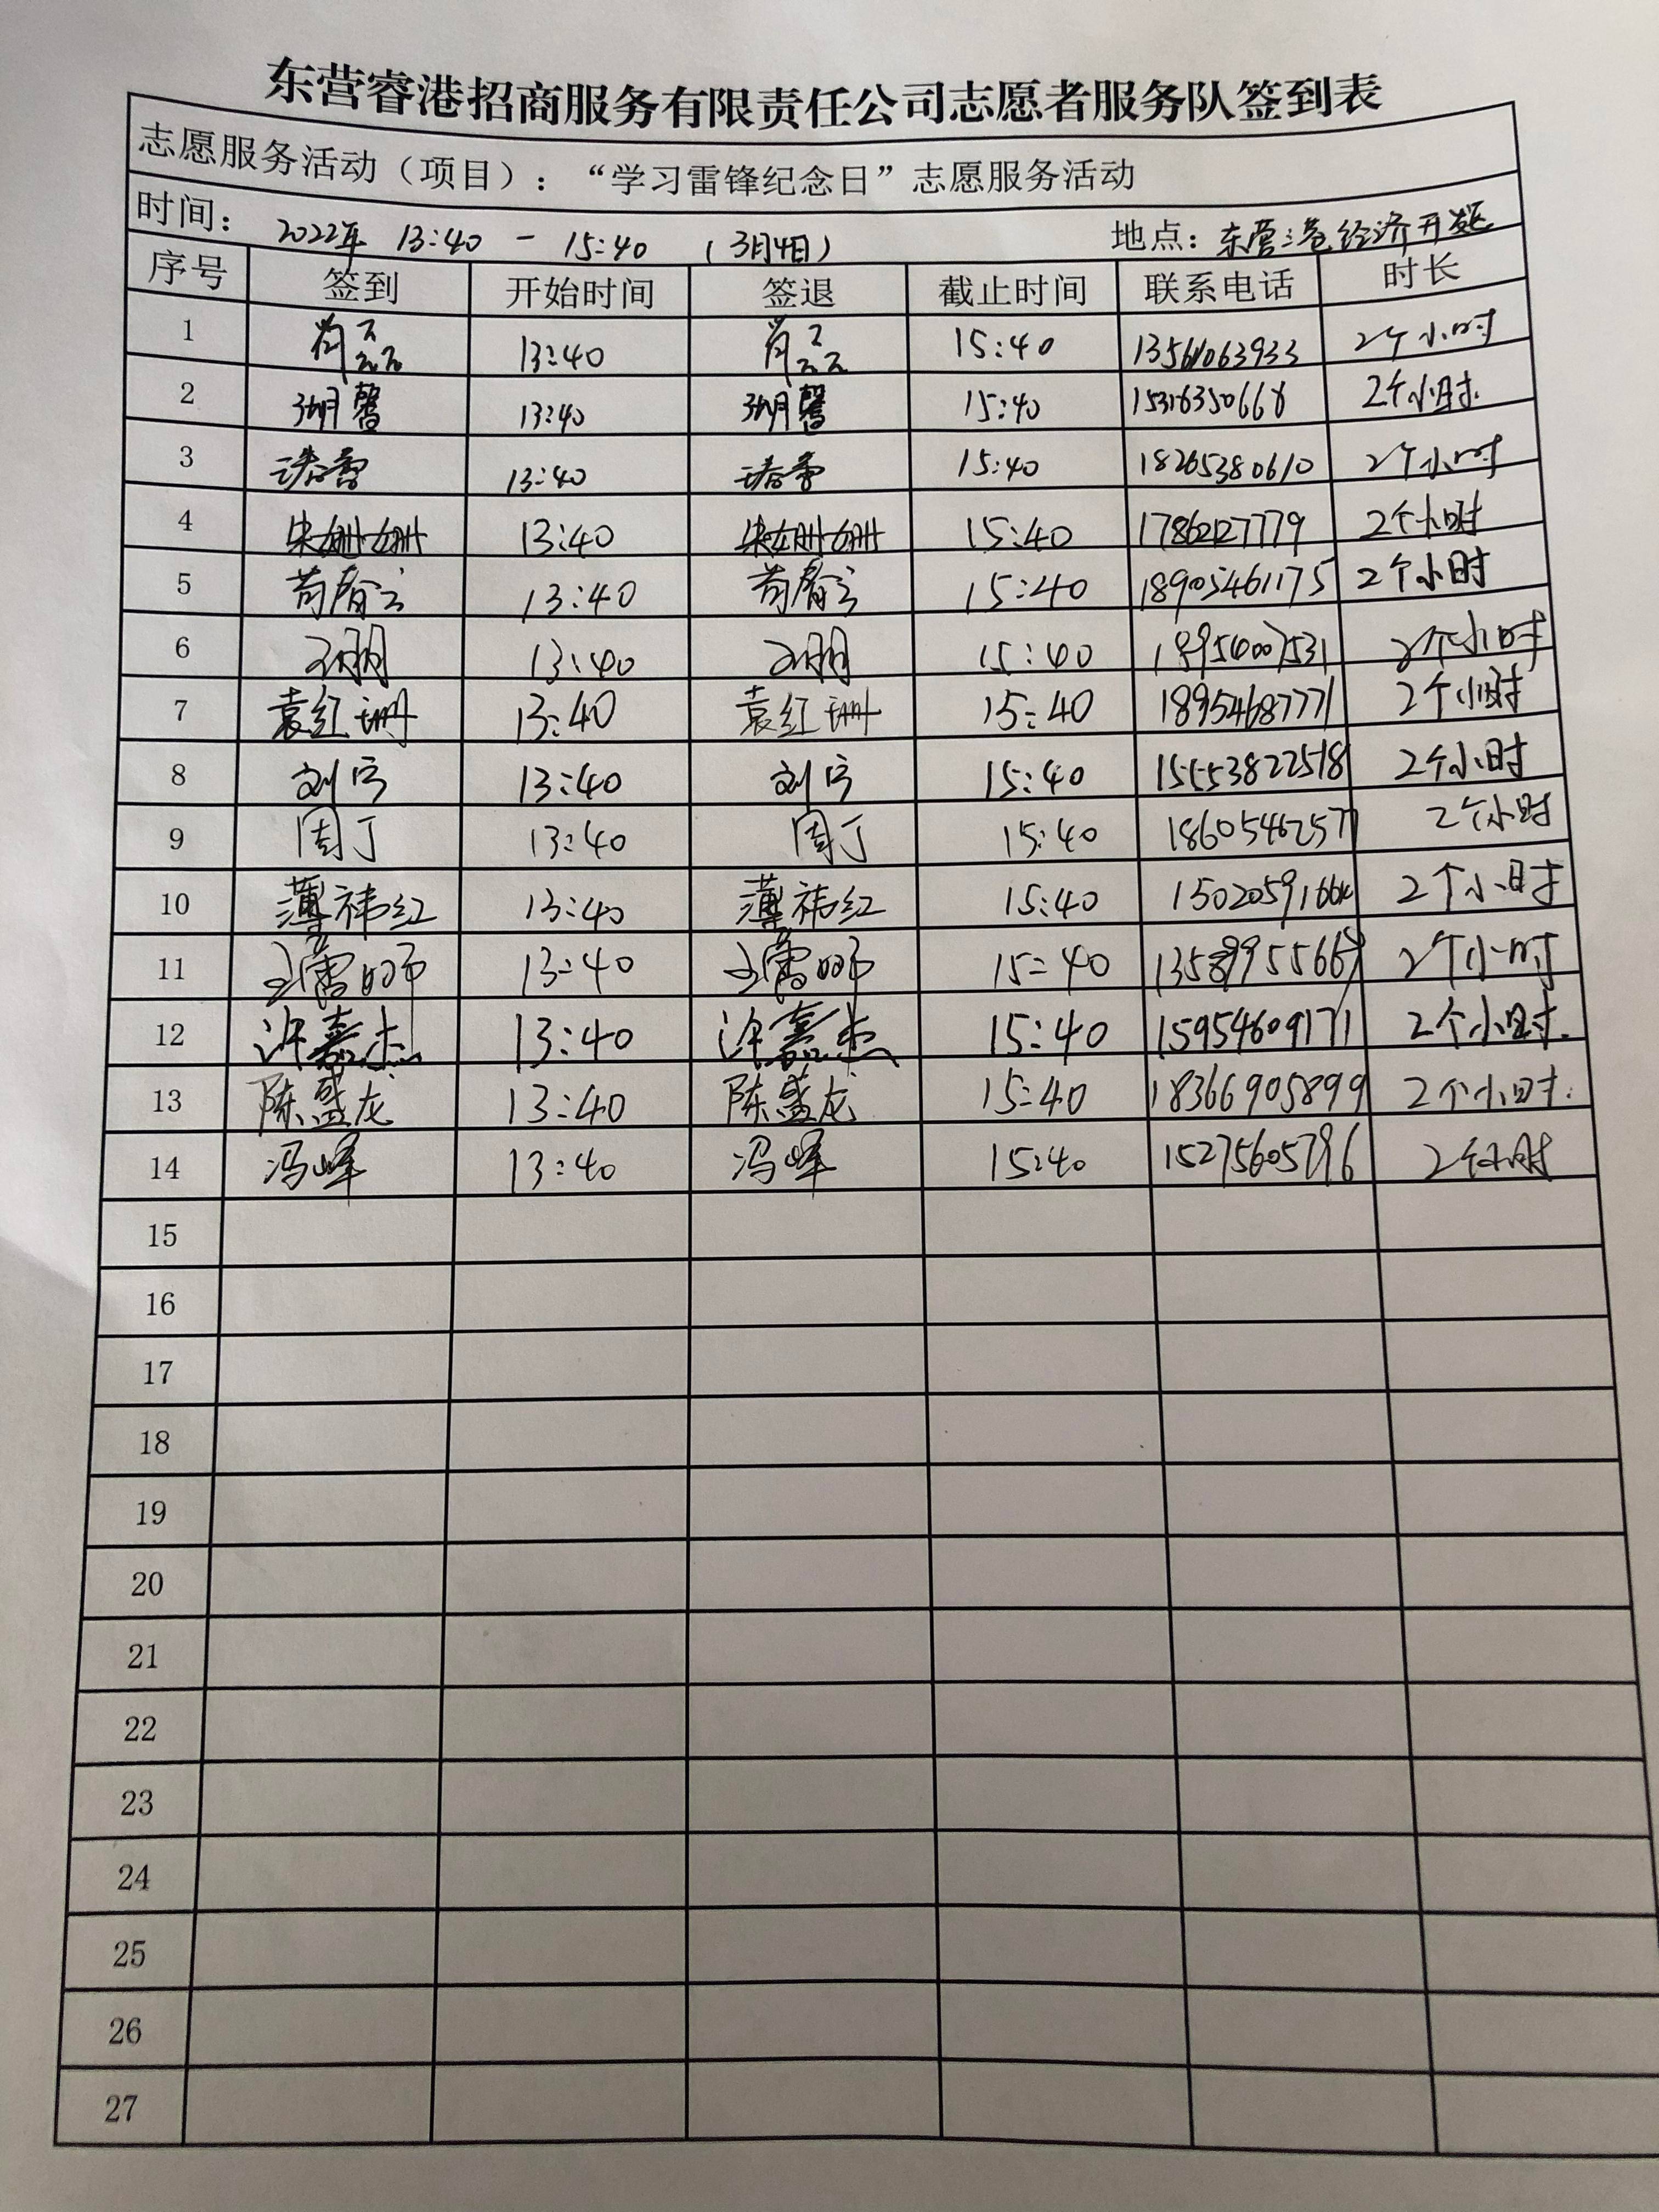 东营睿港招商服务有限责任公司志愿者服务队签到表
志愿服务活动（项目）：“学习雷锋纪念日”志愿服务活动
时间： 2022年 13:40 - 15:40 （3月4日） 地点：东营港经济开发区
序号 签到 开始时间 签退 截止时间 联系电话 时长
1 13:40 15:40 13561063933 2个小时
2 胡馨 13:40 胡馨 15:40 15316350668 2个小时.
3 13:40 15:40 18265380610 2个小时
4 朱姗姗 13:40 朱姗姗 15:40 2个小时
5 13:40 15:40 18905461175 2个小时
6 王朋 13:40 王朋 15:40 18954007531 2个小时
7 袁红珊 13:40 袁红珊 15:40 18954687771 2个小时
8 刘宁 13:40 刘宁 15:40 15553822518 2个小时
9 周丁 13:40 周丁 15:40 18605462577 2个小时
10 薄祎红 13:40 薄祎红 15:40 2个小时
11 13:40 15:40 2个小时
12 许嘉杰 13:40 许嘉杰 15:40 15954609171 2个小时.
13 陈盛龙 13:40 陈盛龙 15:40 18366905899 2个小时.
14 冯峰 13:40 冯峰 15:40 15275605796 2个小时
15
16
17
18
19
20
21
22
23
24
25
26
27